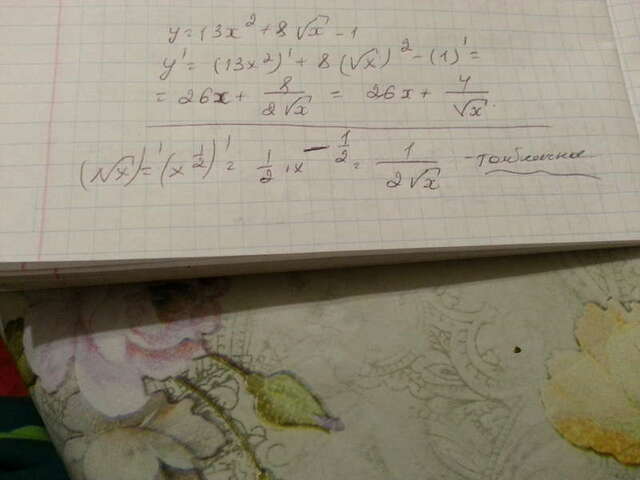 y=13x² + 8√x - 1
y' = (13x²)' + 8(√x)² - (1)' =
= 26x + 8/(2√x) = 26x + 4/√x.
(√x)' = (x^(1/2))' = 1/2 · x^(-1/2) = 1/(2√x) - табличное